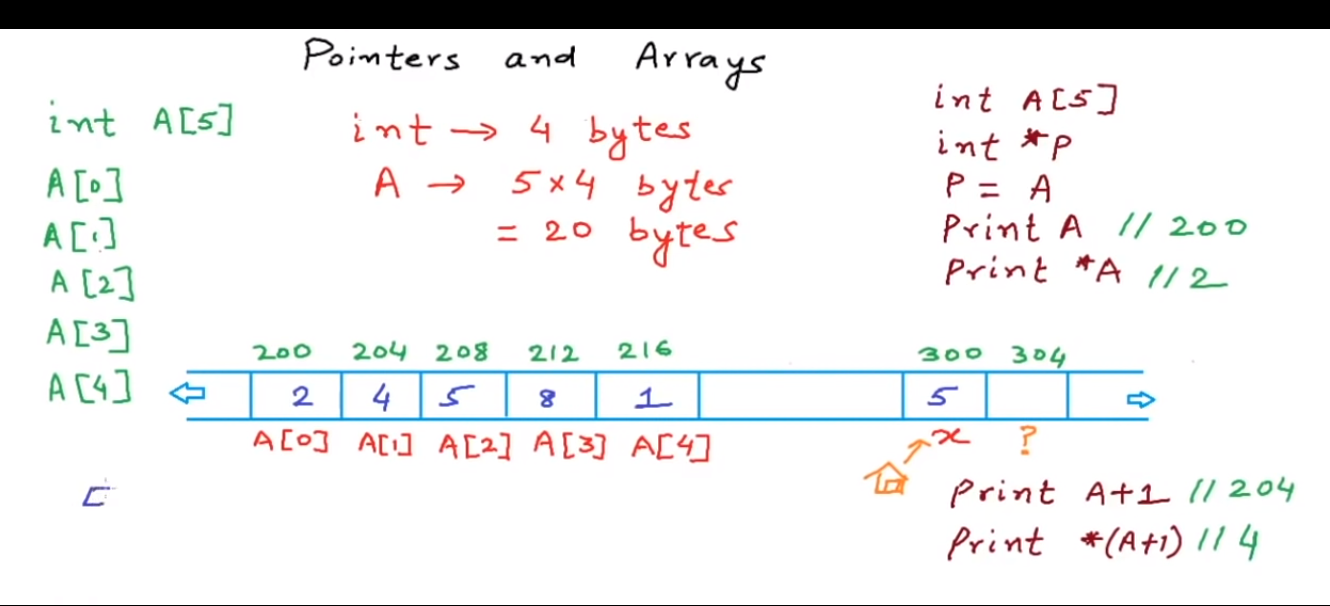 Pointers and Arrays
int A[5]
A[0]
A[1]
A[2]
A[3]
A[4]
int → 4 bytes
A → 5×4 bytes
= 20 bytes
int A[5]
int *P
P = A
Print A // 200
Print *A // 2
200 204 208 212 216 300 304
2 4 5 8 1 5
A[0] A[1] A[2] A[3] A[4] x ?
Print A+1 // 204
Print *(A+1) // 4